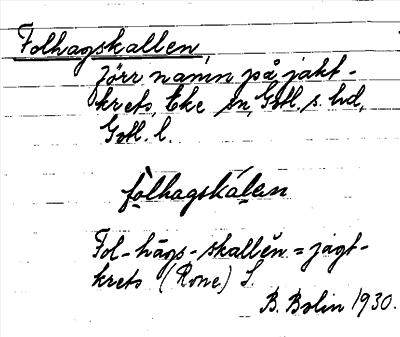 Folhagskallen,
förr namn på jakt-
krets, Eke sn, Gotl. s. hd,
Gotl. l.
fòlhagskálen
Fol-hāgs-skallĕn = jagt-
krets (Rone) S.
B. Bolin 1930.